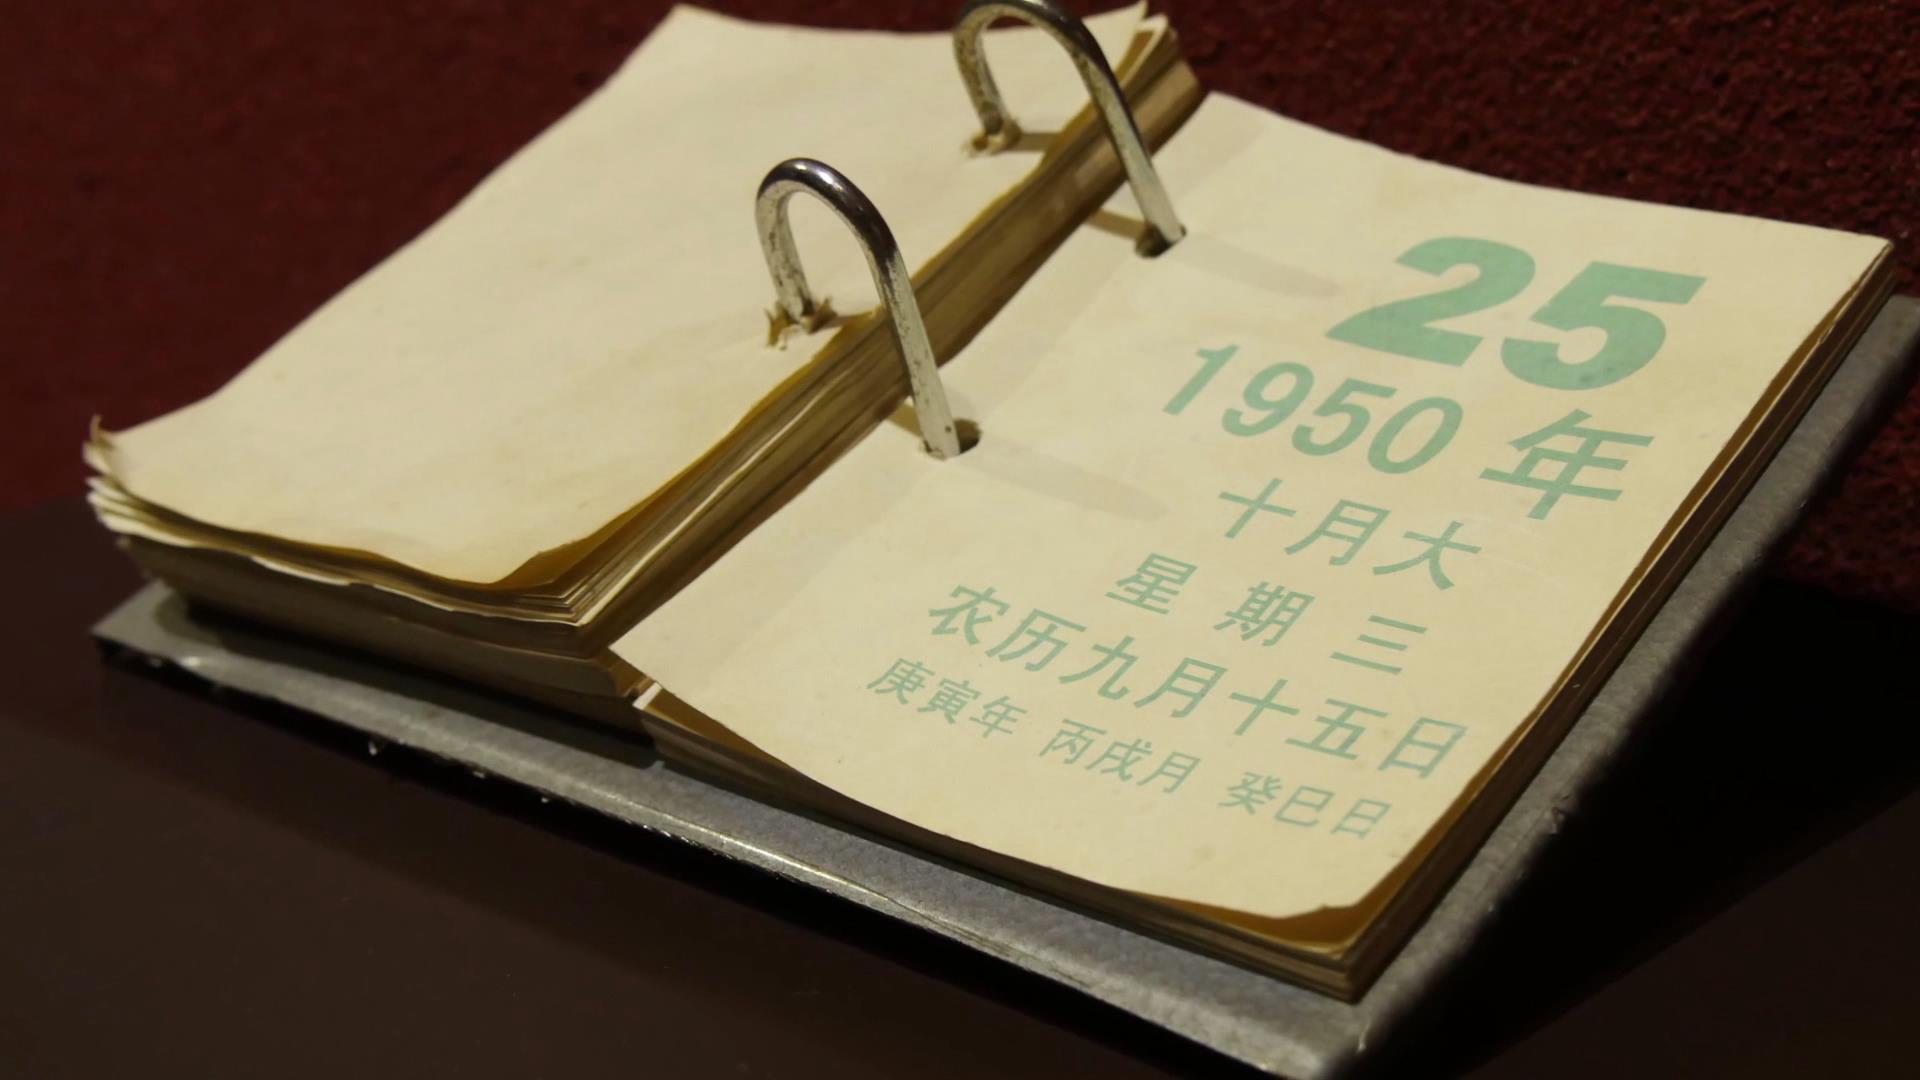 25
1950年
十月大
星期三
农历九月十五日
庚寅年 丙戌月 癸巳日